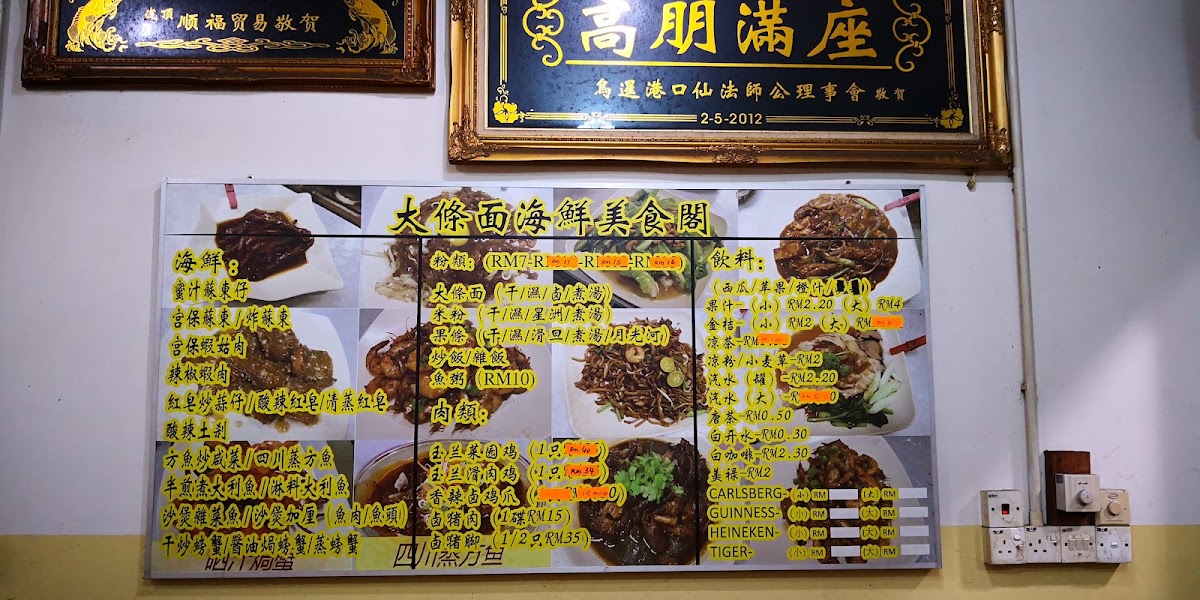 順福贸易敬贺
高朋滿座
烏暹港口仙法師公理事會 敬賀
2-5-2012
大條面海鮮美食閣
海鮮：
蜜汁蘇東仔
宫保蘇東/炸蘇東
宫保蝦姑肉
辣椒蝦肉
紅皂炒蒜仔/酸辣紅皂/清蒸紅皂
酸辣土刹
方魚炒咸菜/四川蒸方魚
半煎煮大利魚/淋料大利魚
沙煲雜菜魚/沙煲加厘 (魚肉/魚頭)
干炒螃蟹/醬油焗螃蟹/蒸螃蟹
粉類：(RM7-RM 11-RM 13-RM 16)
大條面 (干/濕/卤/煮湯)
米粉 (干/濕/星洲/煮湯)
果條 (干/濕/滑旦/煮湯/月光河)
炒飯/雜飯
魚粥 (RM10)
肉類：
玉兰菜园鸡 (1只RM 40)
玉兰滑肉鸡 (1只RM 34)
香辣卤鸡爪
卤猪肉 (1碟RM15)
卤猪脚 (1/2只RM35)
四川蒸方鱼
飲料：
(西瓜/苹果/橙汁/
果汁- (小) RM2.20 (大) RM4
金桔- (小) RM2 (大) RM
凉茶-RM
凉粉/小麦草-RM2
汽水 (罐) -RM2.20
汽水 (大) -R
唐茶-RM0.50
白开水-RM0.30
白咖啡-RM2.30
美禄-RM2
CARLSBERG- (小) RM (大) RM
GUINNESS- (小) RM (大) RM
HEINEKEN- (小) RM (大) RM
TIGER- (小) RM (大) RM